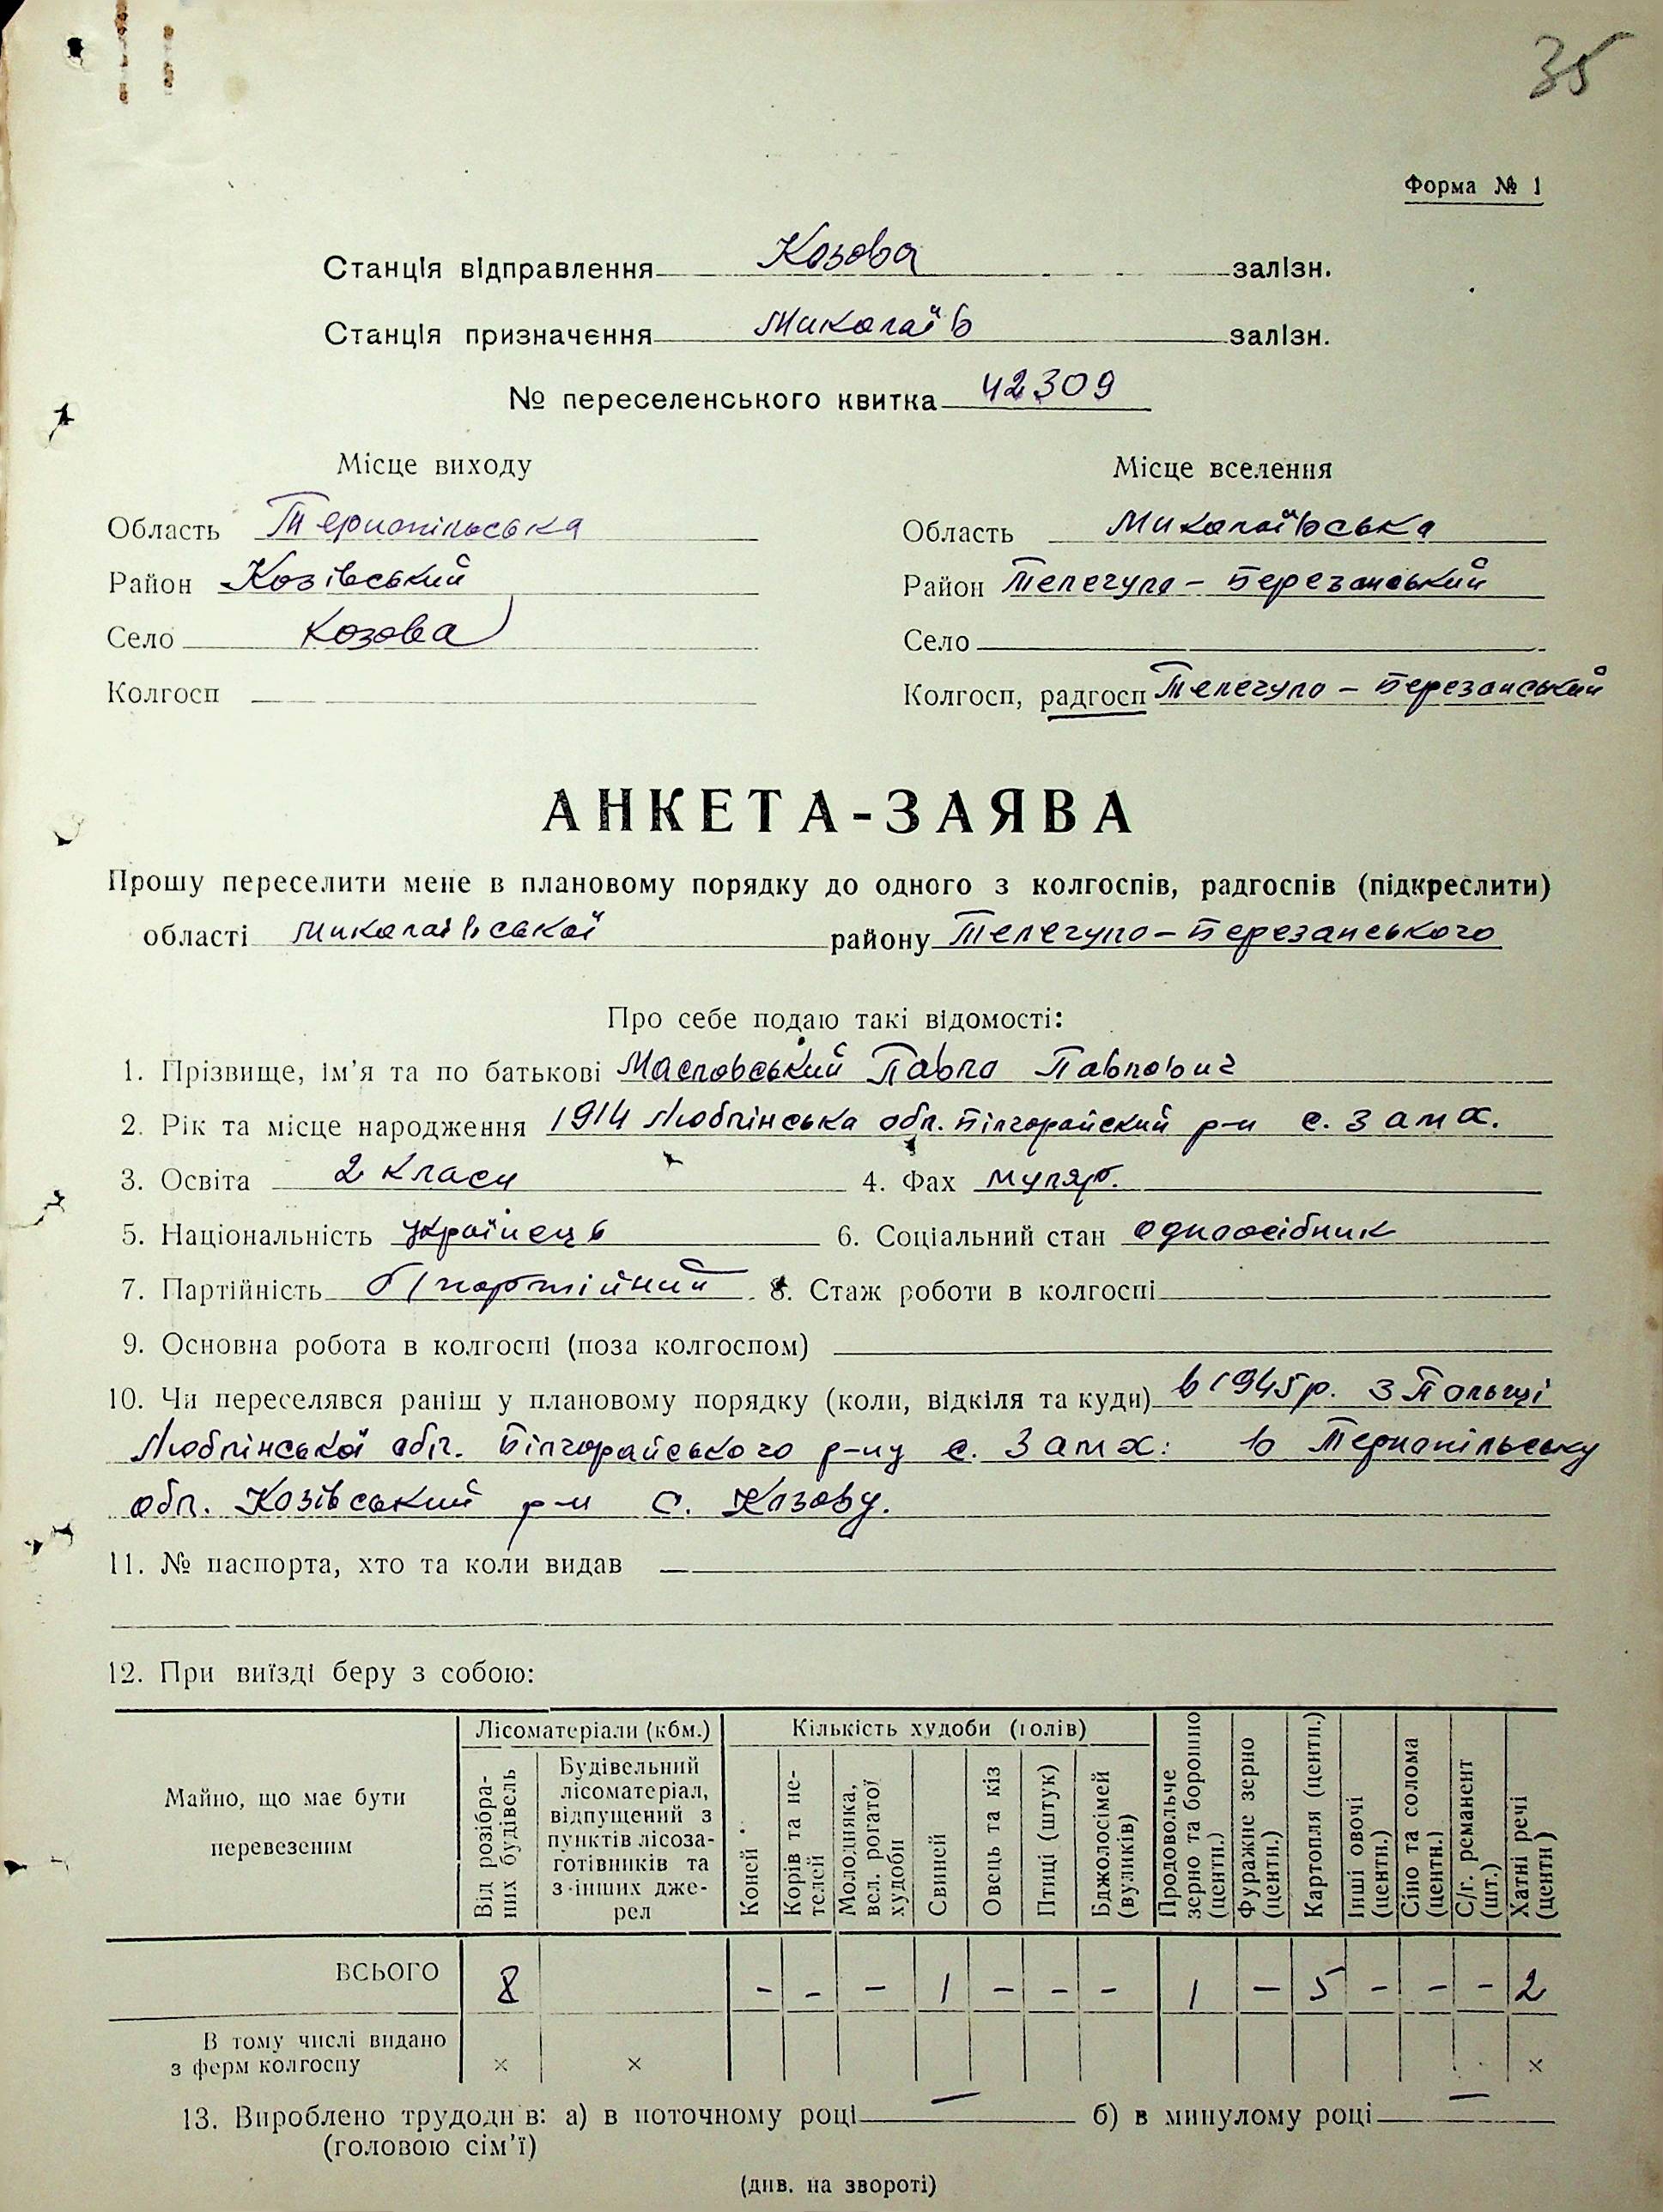 35
Форма № 1
Станція відправлення Козова залізн.
Станція призначення Миколаїв залізн.
№ переселенського квитка 42309
Місце виходу
Область Тернопільська
Район Козівський
Село Козова
Колгосп
Місце вселення
Область Миколаївська
Район Телегуло-Березанський
Село
Колгосп, радгосп Телегуло-Березанський
АНКЕТА-ЗАЯВА
Прошу переселити мене в плановому порядку до одного з колгоспів, радгоспів (підкреслити)
області Миколаївської району Телегуло-Березанського
Про себе подаю такі відомості:
1. Прізвище, ім'я та по батькові Масловський Павло Павлович
2. Рік та місце народження 1914 Люблінська обл. Білгорайский р-н с. Замх.
3. Освіта 2 класи 4. Фах муляр.
5. Національність українець 6. Соціальний стан одноосібник
7. Партійність б/партійний 8. Стаж роботи в колгоспі
9. Основна робота в колгоспі (поза колгоспом)
10. Чи переселявся раніш у плановому порядку (коли, відкіля та куди) в 1945 р. з Польщі
Люблінської обл. Білгорайського р-ну с. Замх: в Тернопільську
обл. Козівський р-н с. Козову.
11. № паспорта, хто та коли видав —
12. При виїзді беру з собою:
Майно, що має бути перевезеним
Лісоматеріали (кбм.)
Від розібраних будівель
Будівельний лісоматеріал, відпущений з пунктів лісозаготівників та з інших джерел
Кількість худоби (голів)
Коней
Корів та нетелей
Молодняка, вел. рогатої худоби
Свиней
Овець та кіз
Птиці (штук)
Бджолосімей (вуликів)
Продовольче зерно та борошно (центн.)
Фуражне зерно (центн.)
Картопля (центн.)
Інші овочі (центн.)
Сіно та солома (центн.)
С/г. реманент (шт.)
Хатні речі (центн)
ВСЬОГО 8 - - - 1 - - - 1 - 5 - - - 2
В тому числі видано
з ферм колгоспу × × ×
13. Вироблено трудоднів: а) в поточному році — б) в минулому році —
(головою сім'ї)
(див. на звороті)